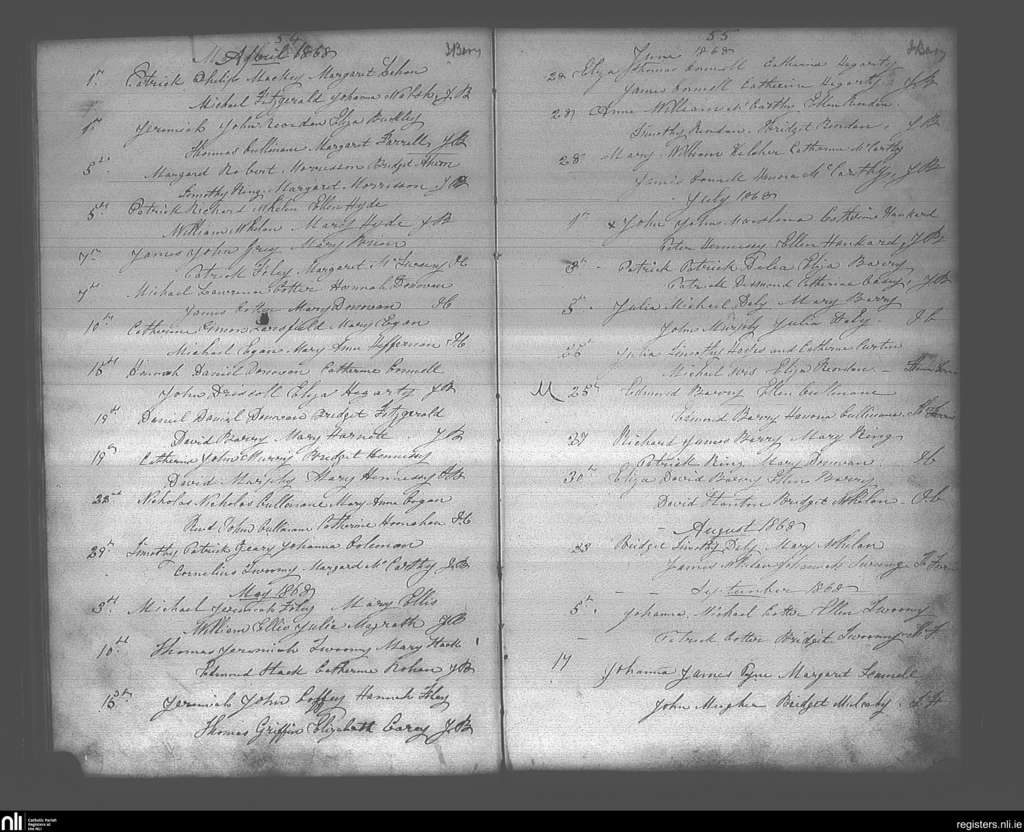 54
April 1868 J Barry
1st Patrick Philip Mackey Margaret
Michael Fitzgerald Johana J B
1st Jeremiah John Reardon Eliza Buckley
Thomas Cullinane Margaret Farrell J B
5th Margard Robert Morrisson Bridget
Timothy Ring Margaret Morrisson J B
5th Patrick Richard Whelan Ellen Hyde
William Whelan Mary Hyde J B
7th James John Grey Mary Brien
Patrick Foley Margaret Mc
7th Michael Laurence Cotter Hannah Donovan
James Cotter Mary Donovan
10th Catherine Mary Egan
Michael Egan Mary Anne Heffernan
15th Hannah Daniel Donovan Catherine Connell
John Driscoll Eliza Hegarty J B
19th Daniel Daniel Donovan Bridget Fitzgerald
David Barry Mary Harnett J B
19th Catherine John Murphy Bridget Hennessy
David Murphy Mary Hennessy
22nd Nicholas Nicholas Cullinane Mary Anne Cogan
Revd John Cullinane Catherine Honnahan
29th Timothy Patrick Geary Johanna Coleman
Cornelius Twoomy Margard McCarthy J B
May 1868
3rd Michael Jeremiah Foley Mary Ellis
William Ellis Julia Magrath J B
10th Thomas Jeremiah Twoomy Mary Hack
Edmund Hack Catherine Rohan J B
15th Jeremiah John Coffey Hannah Foley
Thomas Griffin Elizabeth Carey J B
55
June 1868 J Barry
28 Eliza Thomas Connell Catharine Hegarty
James Connell Catherine Hegarty J B
28 Anne William McCarthy Ellen Reardon
Timothy Reardon Bridget Reardon J B
28 Mary William Kelcher Catharine McCarthy
James Connell Honora McCarthy J B
July 1868
1st x John John Catherine Hankard
Peter Hennessy Ellen Hankard J B
3rd Patrick Patrick Eliza Barry
Patrick Desmond Catherine Casey J B
5th Julia Michael Daly Mary Barry
John Murphy Julia Daly
25th Julia Timothy and Catherine Curtin
Michael Eliza Reardon
M 25th Edmund Barry Ellen Cullinane
Edmund Barry Honora Cullinane
27 Richard James Barry Mary Ring
Patrick Ring Mary Donovan
30th Eliza David Barry Ellen Barry
David Stanton Bridget Whelan
August 1868
23 Bridget Timothy Daly Mary Whelan
James Whelan
September 1868
5th Johana Michael Cotter Ellen Twoomy
Patrick Cotter Bridget Twoomy
17 Johanna James Pyne Margaret Connell
John Bridget
nli Catholic Parish Registers at the NLI
registers.nli.ie